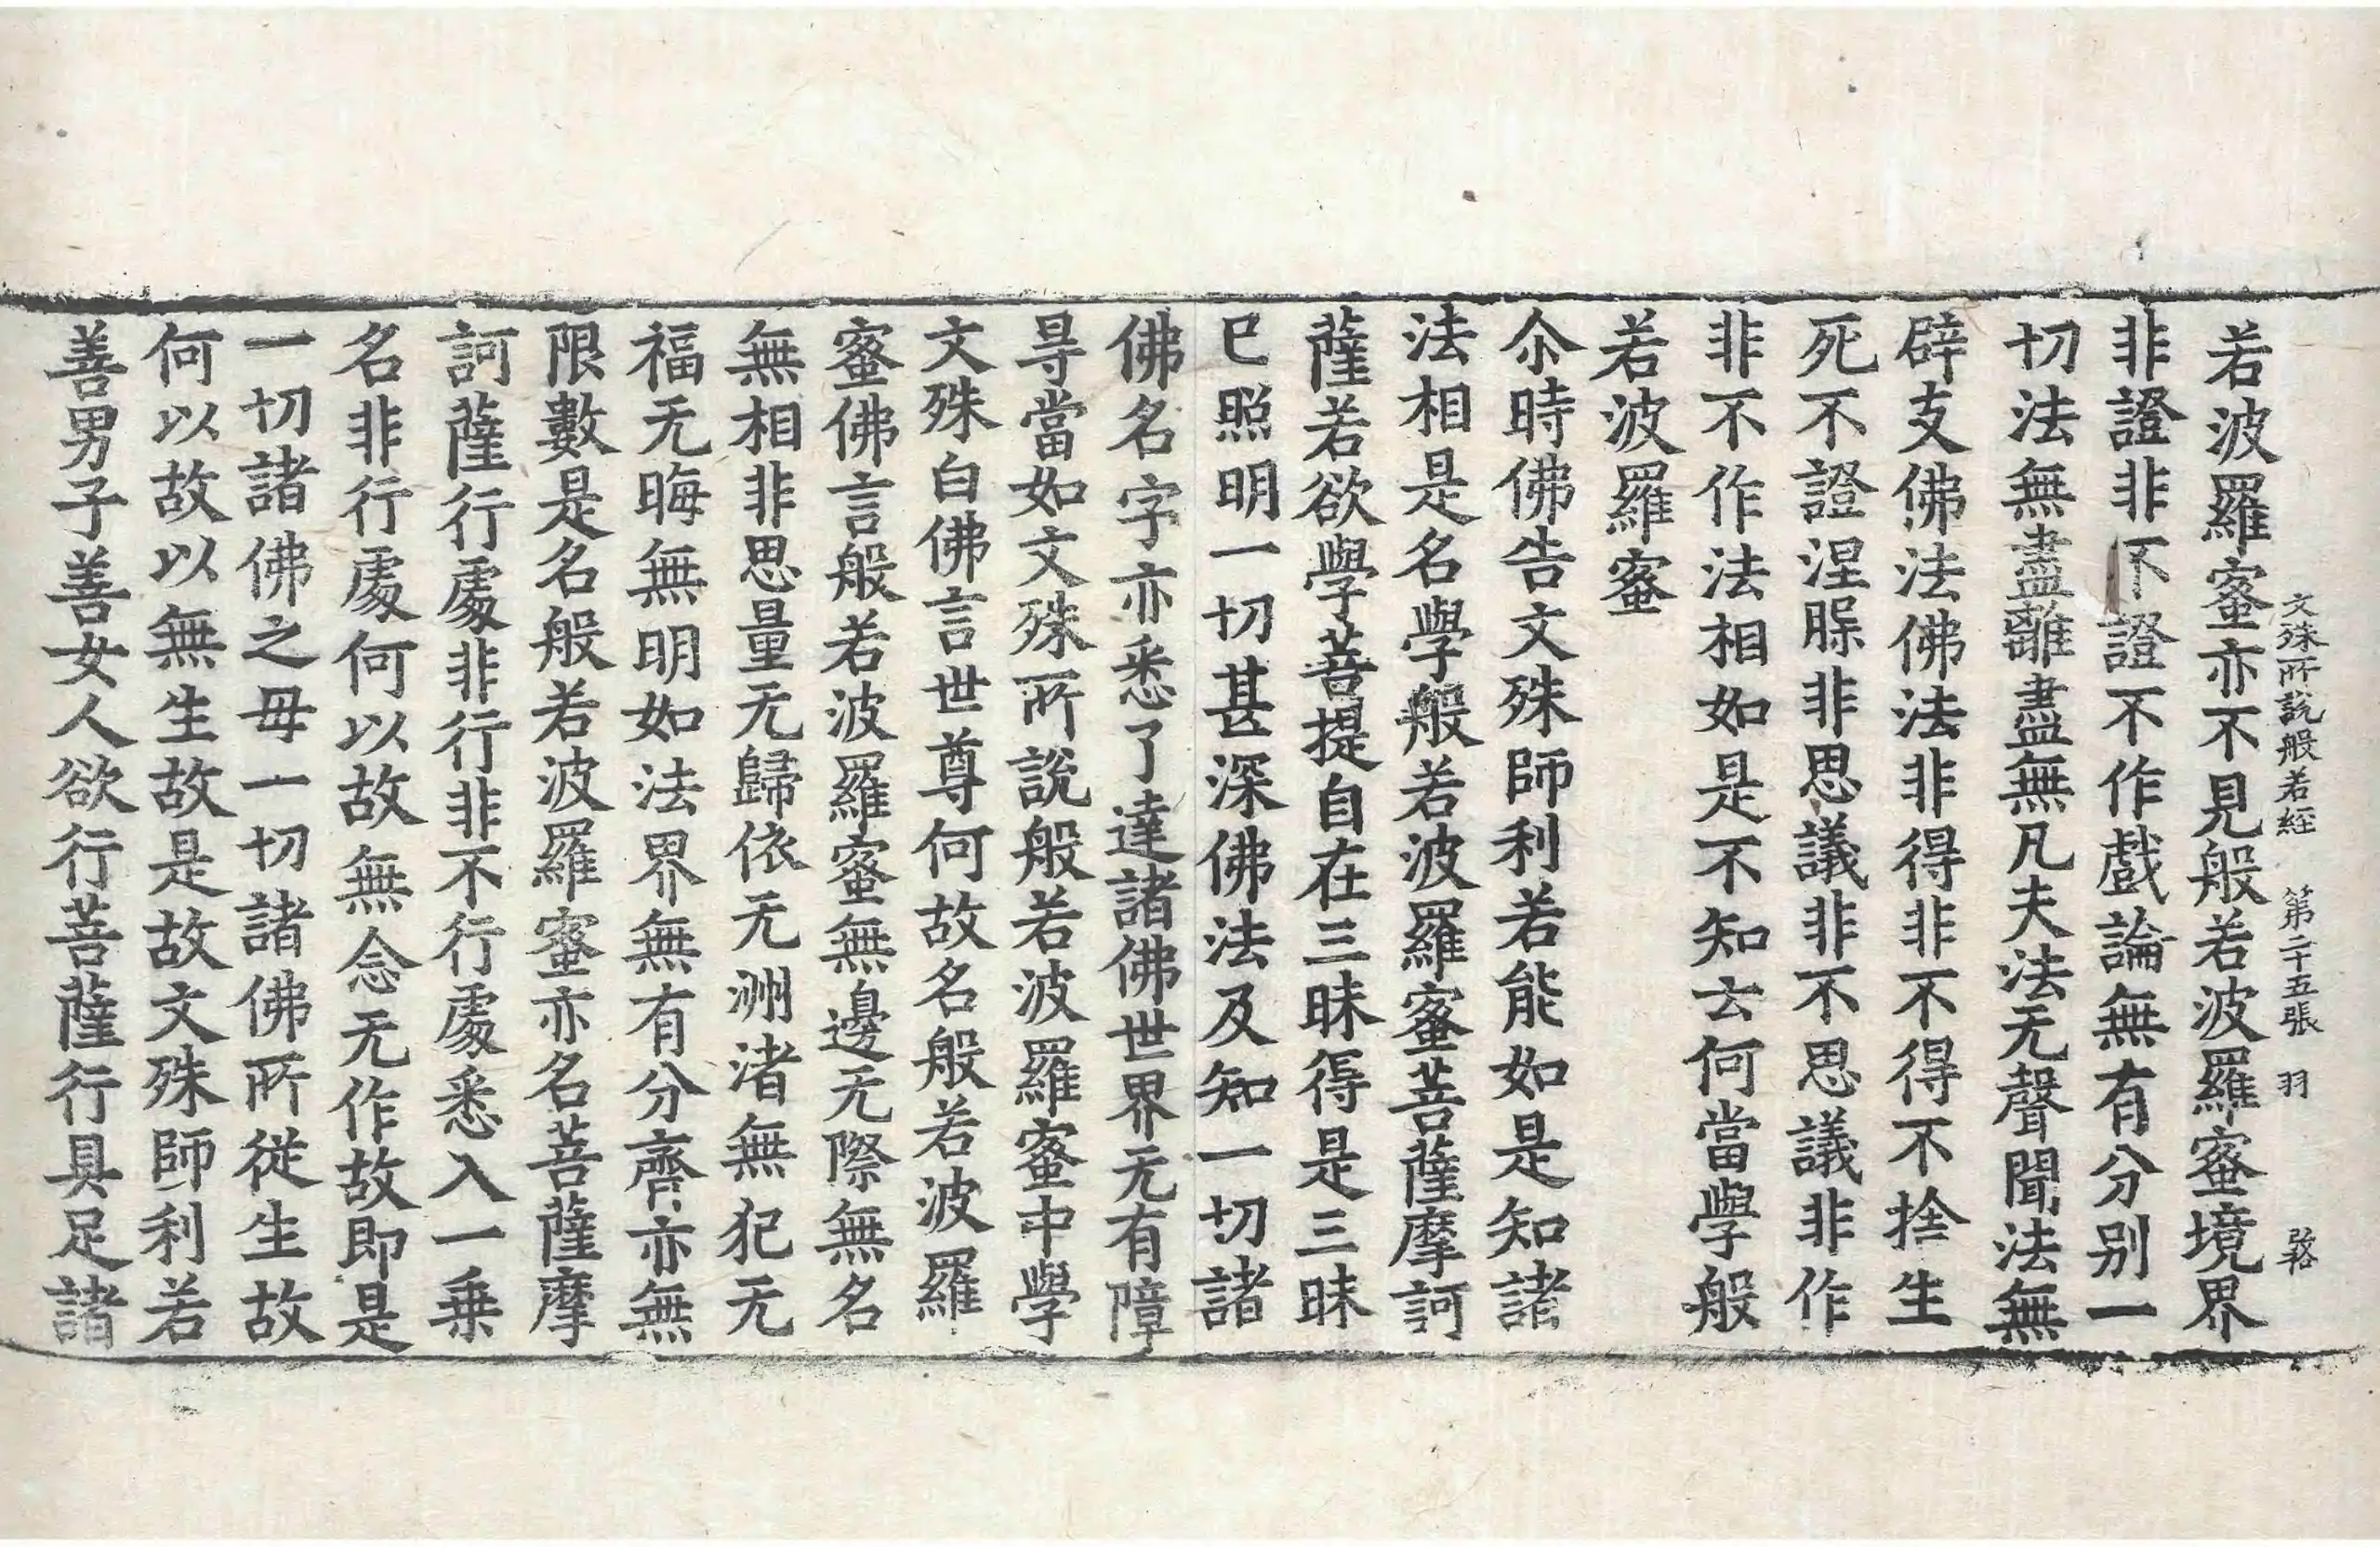 文殊所說般若經　第二十五張　羽
若波羅蜜亦不見般若波羅蜜境界
非證非不證不作戲論無有分别一
切法無盡離盡無凡夫法无聲聞法無
辟支佛法佛法非得非不得不捨生
死不證涅槃非思議非不思議非作
非不作法相如是不知云何當學般
若波羅蜜
尒時佛告文殊師利若能如是知諸
法相是名學般若波羅蜜菩薩摩訶
薩若欲學菩提自在三昧得是三昧
已照明一切甚深佛法及知一切諸
佛名字亦悉了達諸佛世界无有障
㝵當如文殊所說般若波羅蜜中學
文殊白佛言世尊何故名般若波羅
蜜佛言般若波羅蜜無邊无際無名
無相非思量无歸依无洲渚無犯无
福无晦無明如法界無有分齊亦無
限數是名般若波羅蜜亦名菩薩摩
訶薩行處非行非不行處悉入一乗
名非行處何以故無念无作故即是
一切諸佛之母一切諸佛所從生故
何以故以無生故是故文殊師利若
善男子善女人欲行菩薩行具足諸